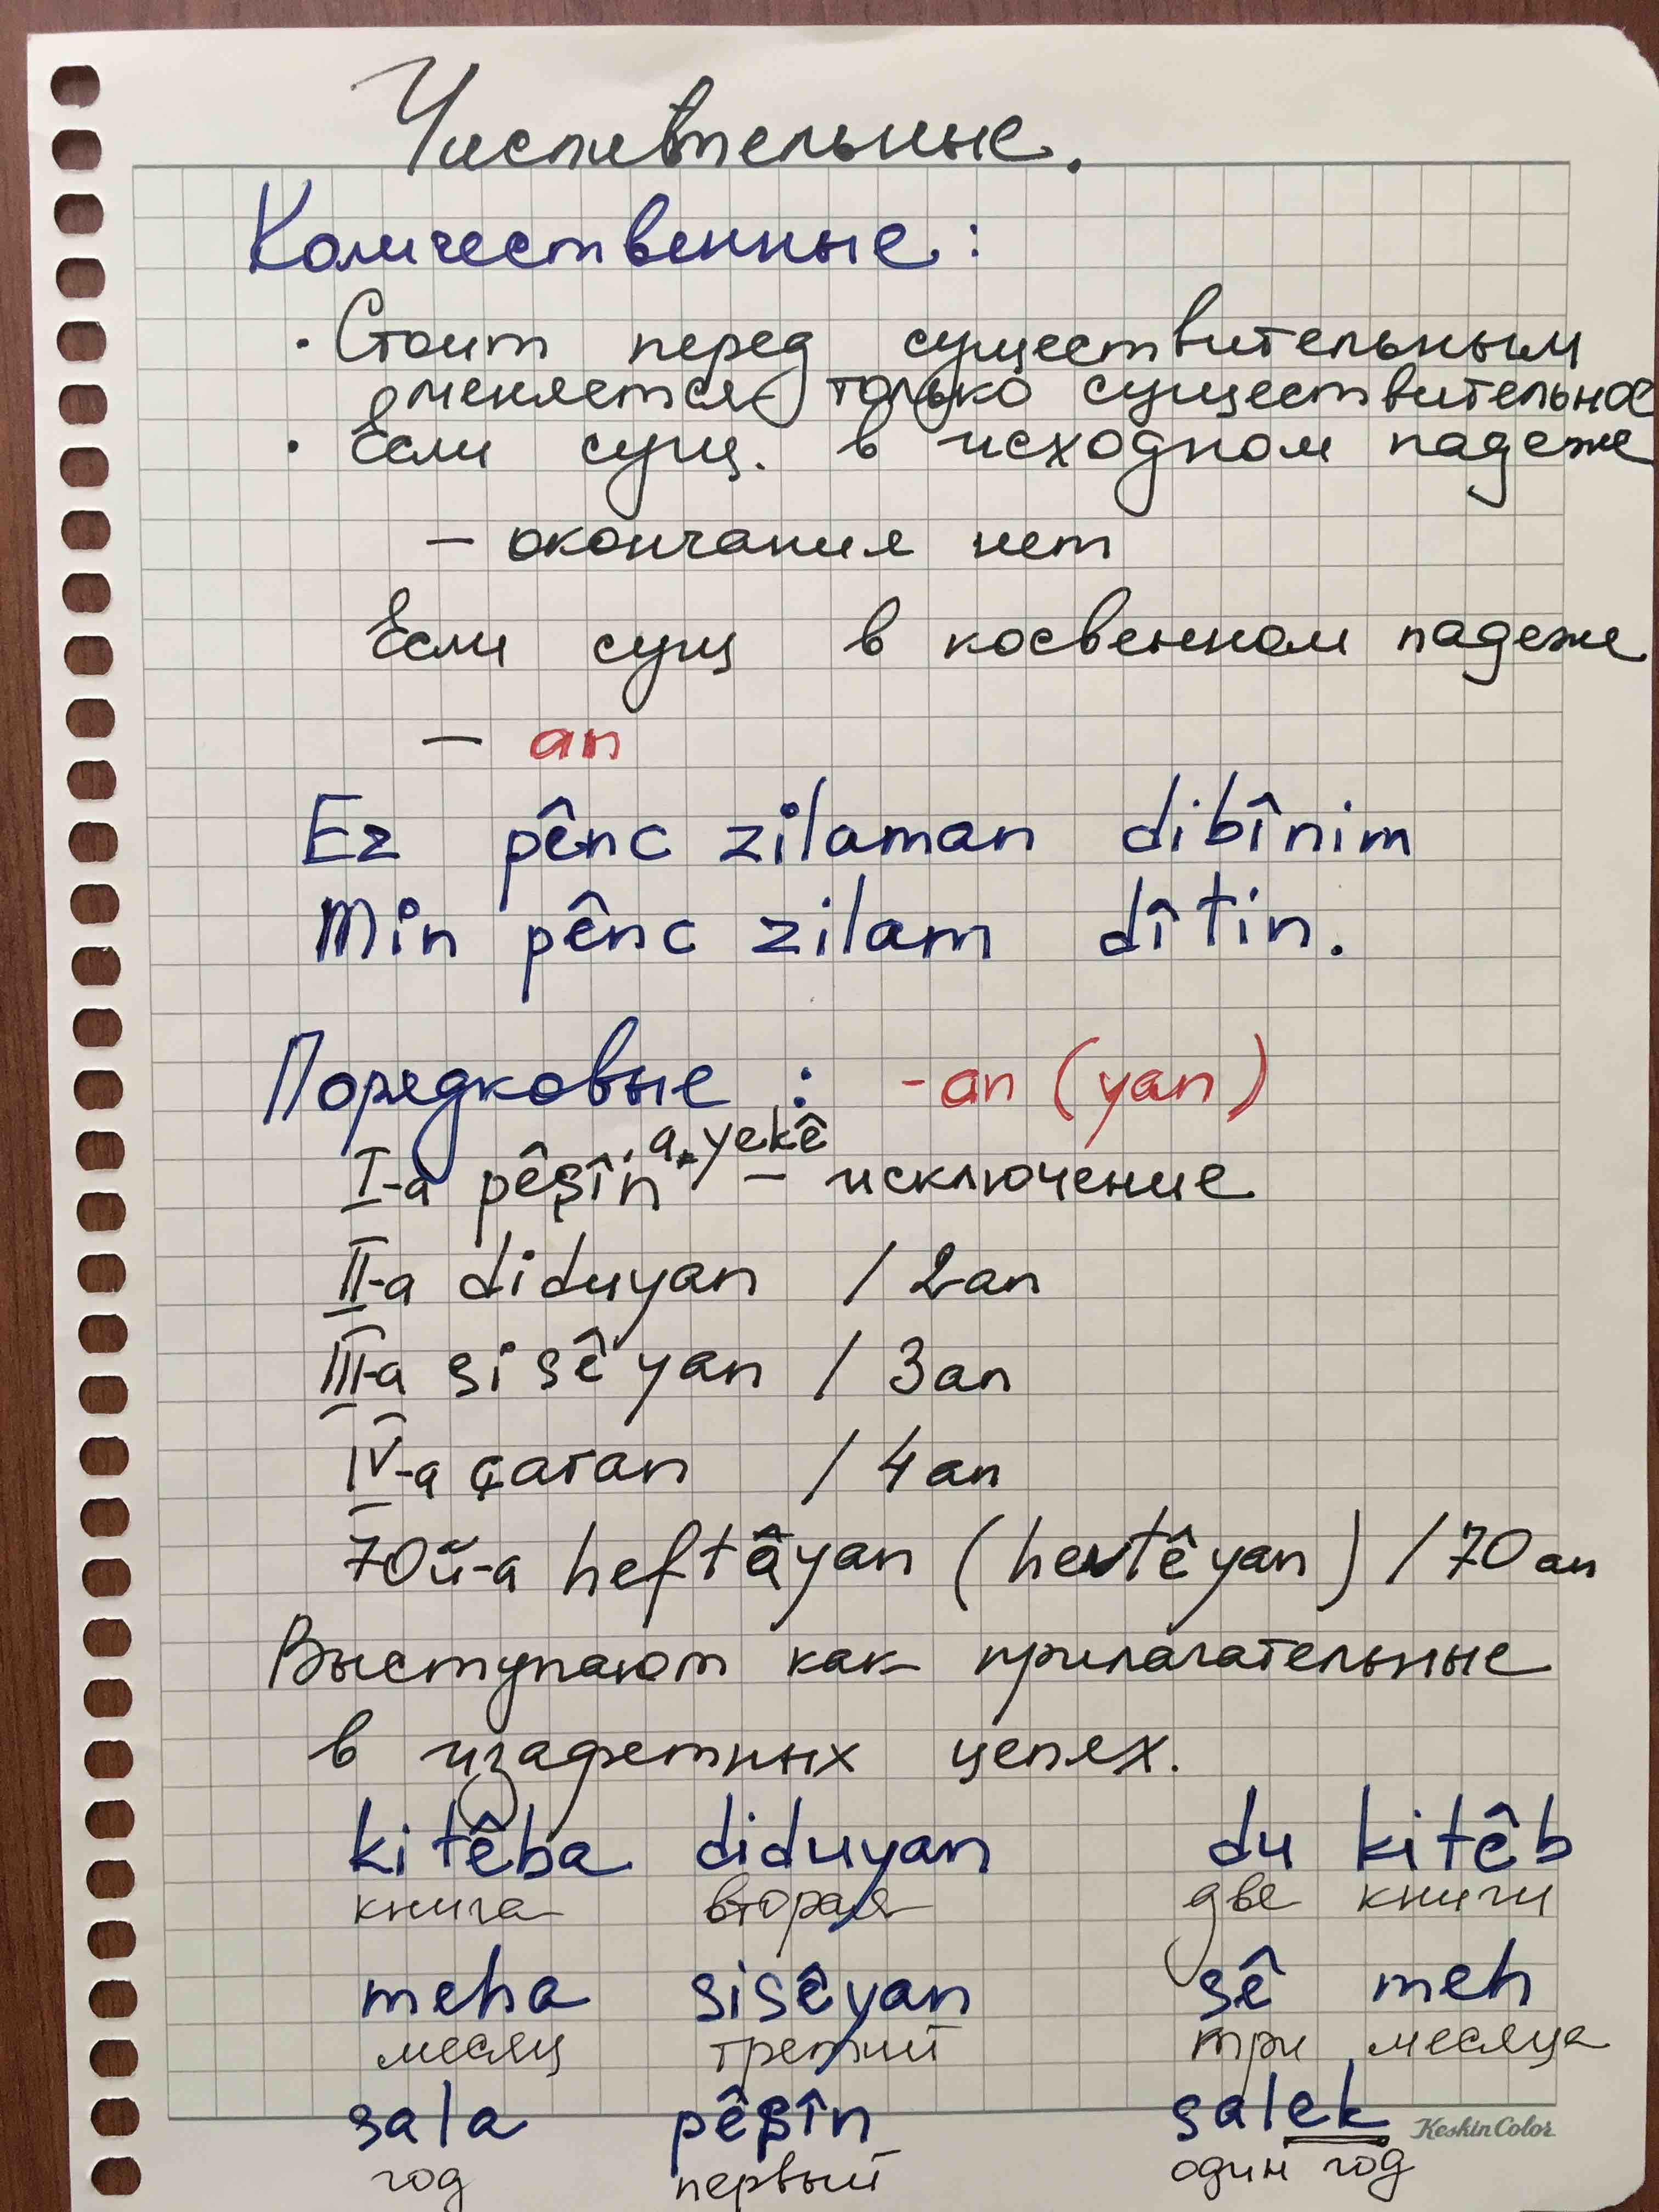 Числительные.
Количественные:
· Стоит перед существительным
меняется только существительное
· Если сущ. в исходном падеже
– окончания нет
Если сущ в косвенном падеже
– an
Ez pênc zilaman dibînim
Min pênc zilam dîtin.
Порядковые : -an (yan)
a, yekê
I-a pêşîn – исключение
II-a diduyan / 2an
III-a sisêyan / 3an
IV-a çaran / 4an
70й-a heftêyan (hevtêyan) / 70an
Выступают как прилагательные
в изафетных цепях.
kitêba diduyan du kitêb
книга вторая две книги
meha sisêyan sê meh
месяц третий три месяца
sala pêşîn salek
KeskinColor
год первый один год